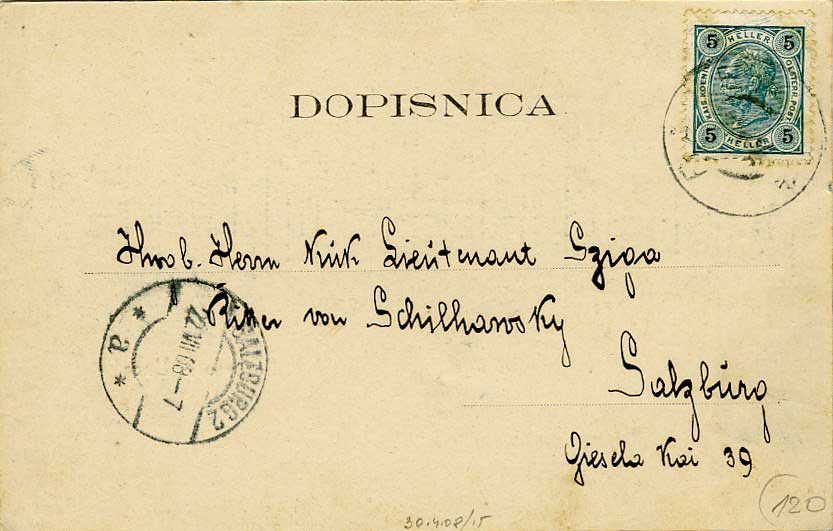 5 HELLER 5
KAIS. KÖNIGL. OESTERR. POST
5 HELLER 5
DOPISNICA
Hwob. Herrn KuK Lieutenant Sziga
Ritter von Schilhawsky
Salzburg
Gisela Kai 39
SALZBURG 2
22 VII 08-7
* a *
30.4.08/15
120